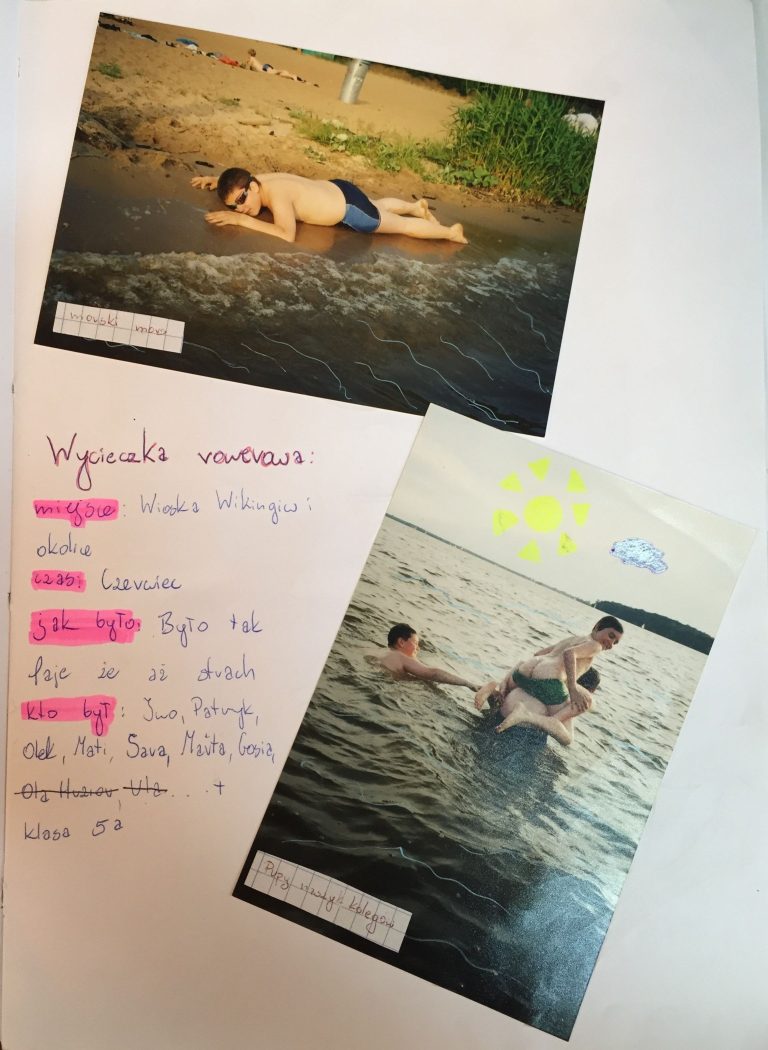 morski mors
Wycieczka rowerowa:
miejsce: Wioska Wikingiw i
okolice
czas: Czerwiec
jak było: Było tak
faje że aż strach
kto był: Iwo, Patryk,
Olek, Mati, Sara, Marta, Gosia,
Ola Ula.... +
klasa 5a
Pupy naszych kolegów